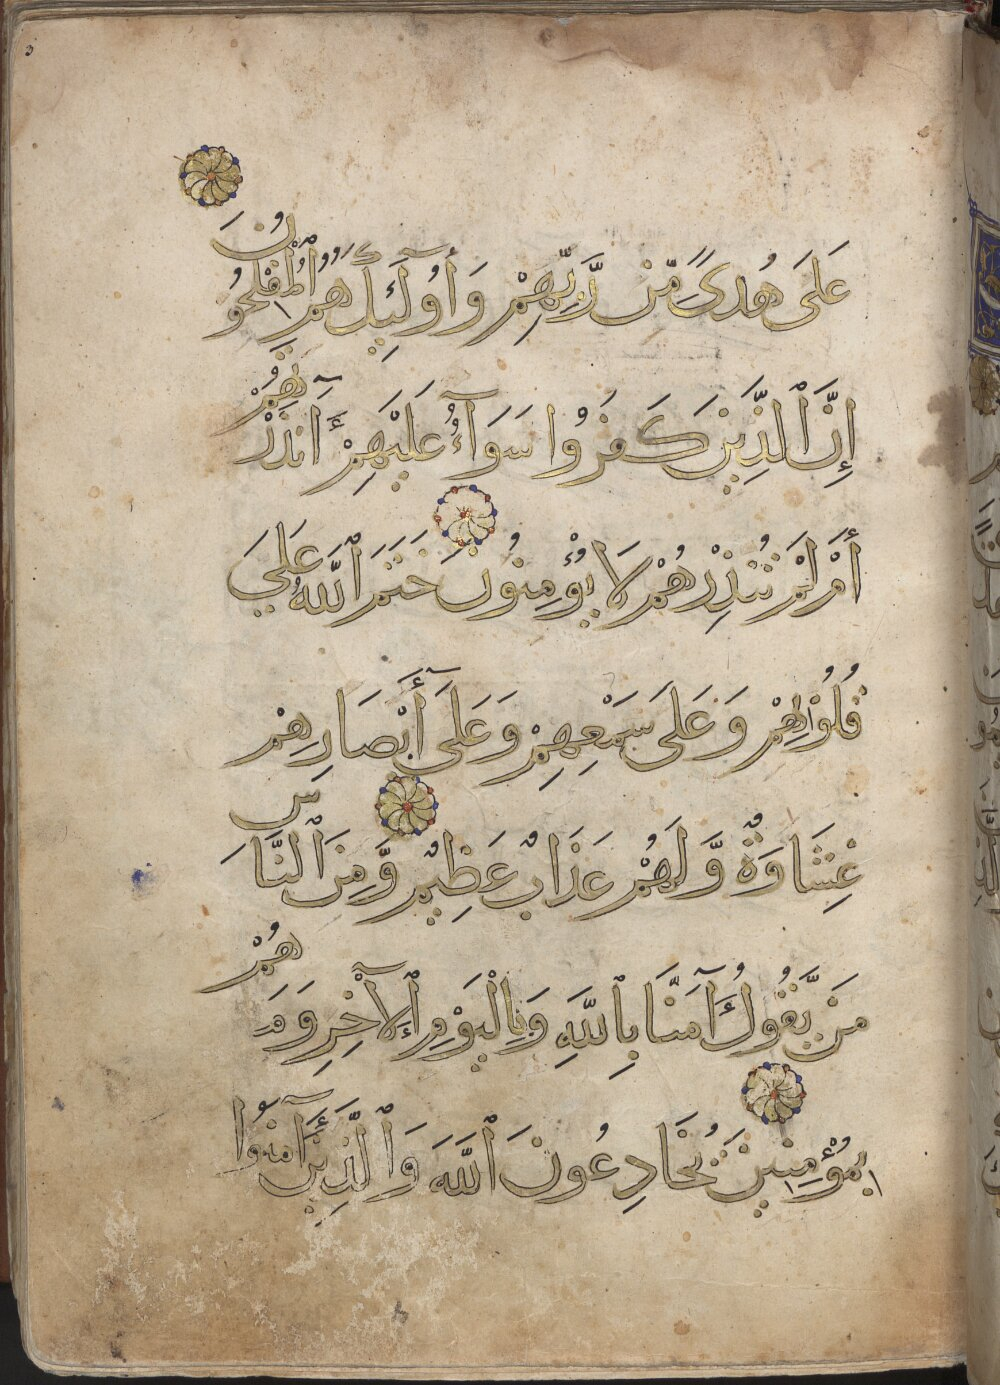 عَلَىٰ هُدًى مِّن رَّبِّهِمْ وَأُولَٰئِكَ هُمُ الْمُفْلِحُونَ
إِنَّ الَّذِينَ كَفَرُوا سَوَآءٌ عَلَيْهِمْ ءَآنذَرْتَهُمْ
أَمْ لَمْ تُنذِرْهُمْ لَا يُؤْمِنُونَ خَتَمَ اللَّهُ عَلَىٰ
قُلُوبِهِمْ وَعَلَىٰ سَمْعِهِمْ وَعَلَىٰ أَبْصَارِهِمْ
غِشَاوَةٌ وَّلَهُمْ عَذَابٌ عَظِيمٌ وَّمِنَ النَّاسِ
مَن يَّقُولُ ءَامَنَّا بِاللَّهِ وَبِالْيَوْمِ الْآخِرِ وَمَا هُمْ
بِمُؤْمِنِينَ يُخَادِعُونَ اللَّهَ وَالَّذِينَ ءَامَنُوا